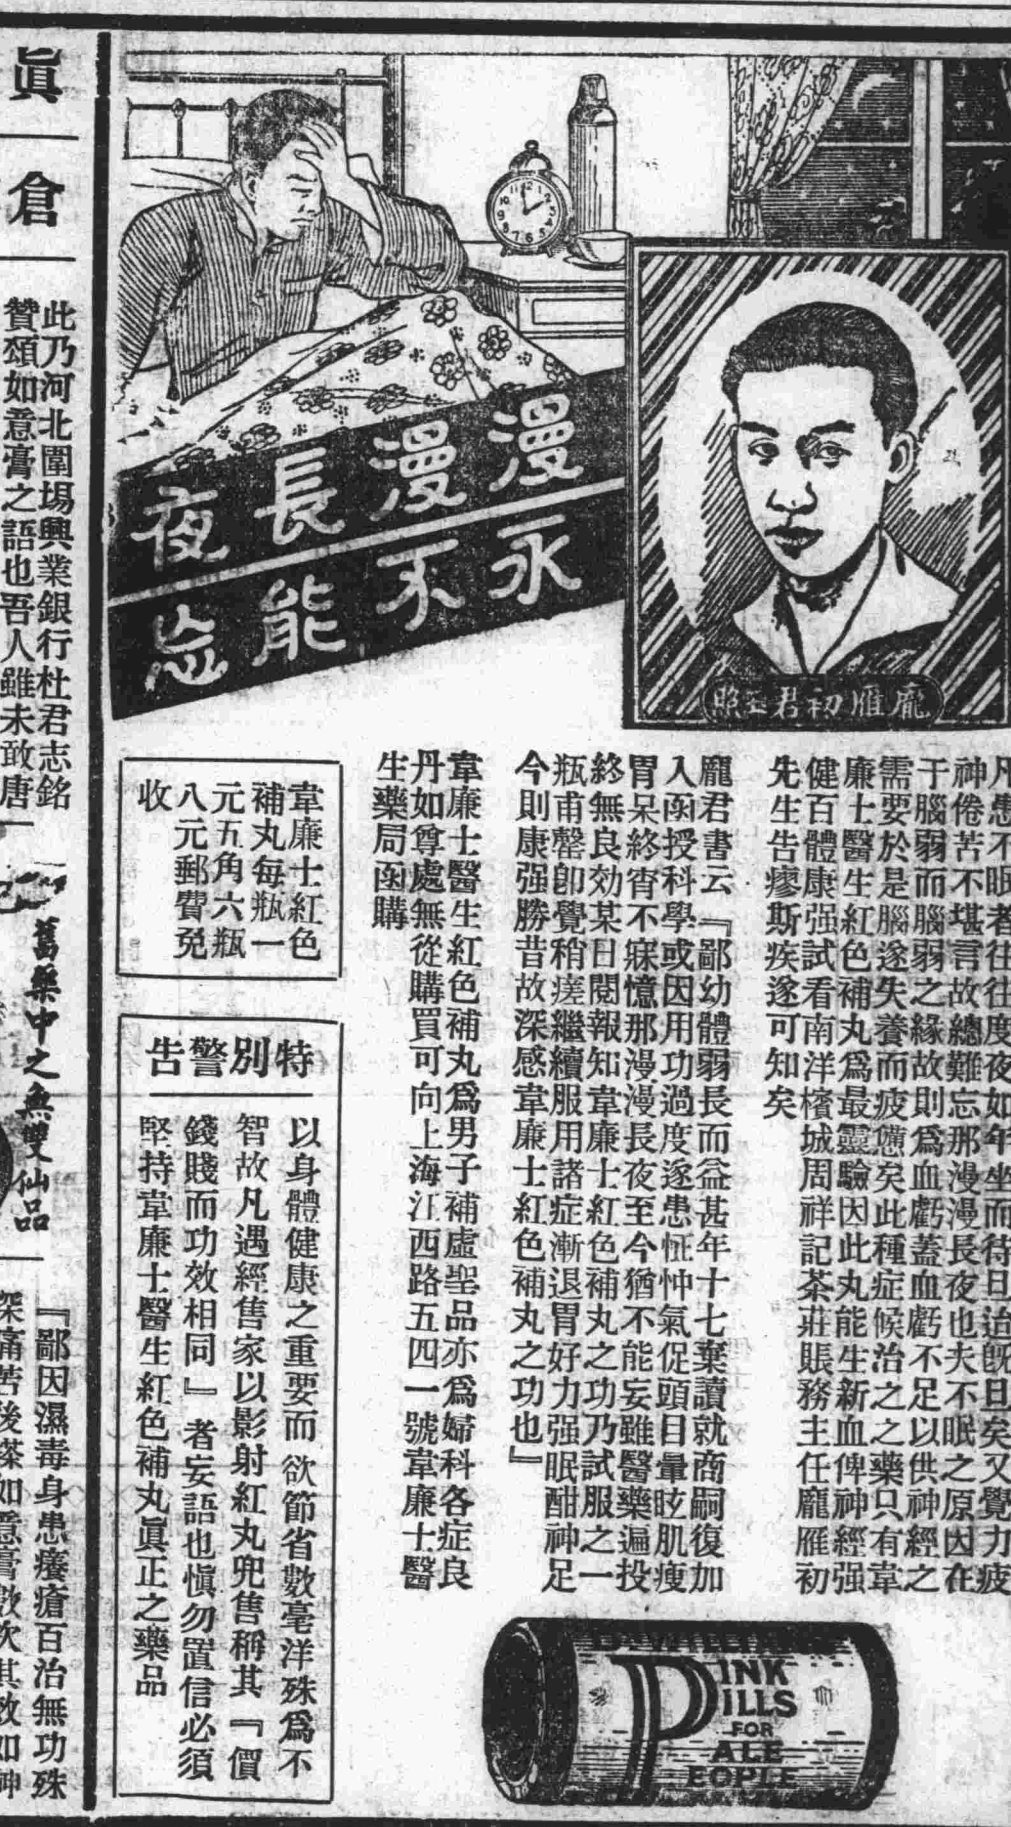 漫漫長夜
永不能忘
龐雁初君玉照
凡患不眠者往往度夜如年坐而待旦迨旣旦矣又覺力疲
神倦苦不堪言故總難忘那漫漫長夜也夫不眠之原因在
于腦弱而腦弱之緣故則爲血虧蓋血虧不足以供神經之
需要於是腦遂失養而疲憊矣此種症候治之之藥只有韋
廉士醫生紅色補丸爲最靈驗因此丸能生新血俾神經强
健百體康强試看南洋檳城周祥記茶莊賬務主任龐雁初
先生告瘳斯疾遂可知矣
龐君書云『鄙幼體弱長而益甚年十七棄讀就商嗣復加
入函授科學或因用功過度遂患怔忡氣促頭目暈眩肌瘦
胃呆終宵不寐憶那漫漫長夜至今猶不能妄雖醫藥遍投
終無良効某日閱報知韋廉士紅色補丸之功乃試服之一
瓶甫罄卽覺稍瘥繼續服用諸症漸退胃好力强眠酣神足
今則康强勝昔故深感韋廉士紅色補丸之功也』
韋廉士醫生紅色補丸爲男子補虛聖品亦爲婦科各症良
丹如尊處無從購買可向上海江西路五四一號韋廉士醫
生藥局函購
韋廉士紅色
補丸每瓶一
元五角六瓶
八元郵費免
收
特別警告
以身體健康之重要而欲節省數毫洋殊爲不
智故凡遇經售家以影射紅丸兜售稱其『價
錢賤而功效相同』者妄語也愼勿置信必須
堅持韋廉士醫生紅色補丸眞正之藥品
DR WILLIAMS
PINK
PILLS
FOR
PALE
PEOPLE
眞
倉
此乃河北圍場興業銀行杜君志銘
贊頌如意膏之語也吾人雖未敢唐
舊藥中之無雙仙品
『鄙因濕毒身患癢瘡百治無功殊
深痛苦後搽如意膏數次其效如神